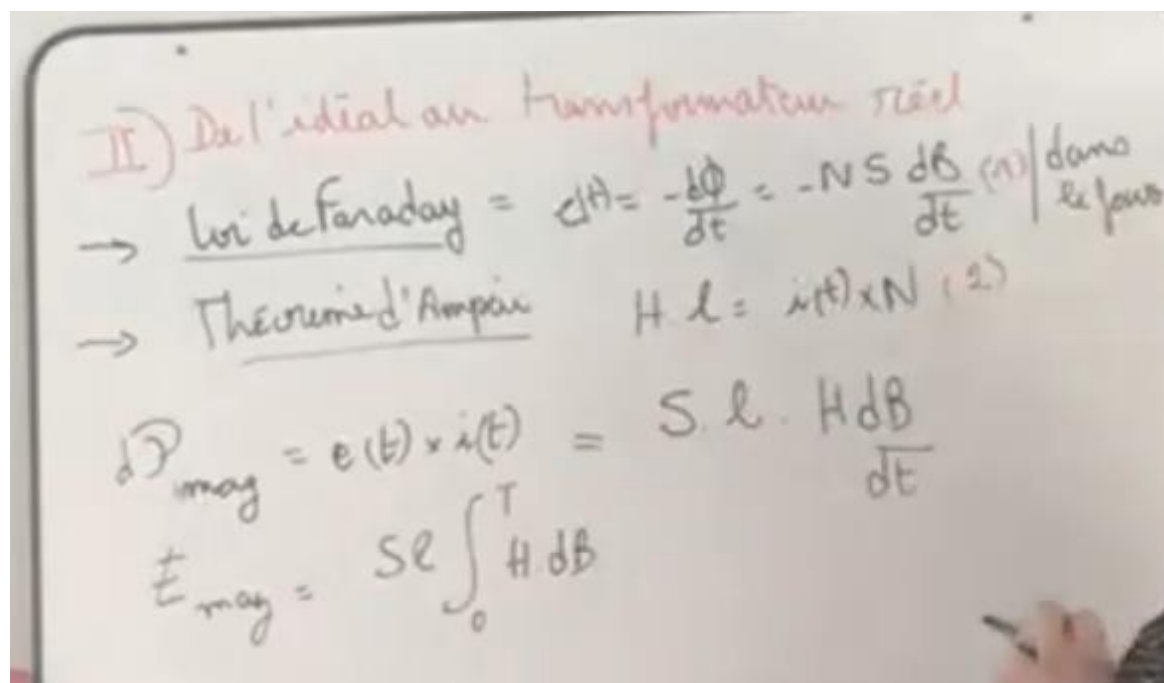 II) De l'idéal au transformateur réel
→ Loi de Faraday = e(t) = -dΦ/dt = -NS dB/dt (1) | dans le fer
→ Théorème d'Ampère H.l = i(t)×N (2)
dP_mag = e(t) × i(t) = S.l. H dB/dt
E_mag = Sl ∫₀ᵀ H.dB